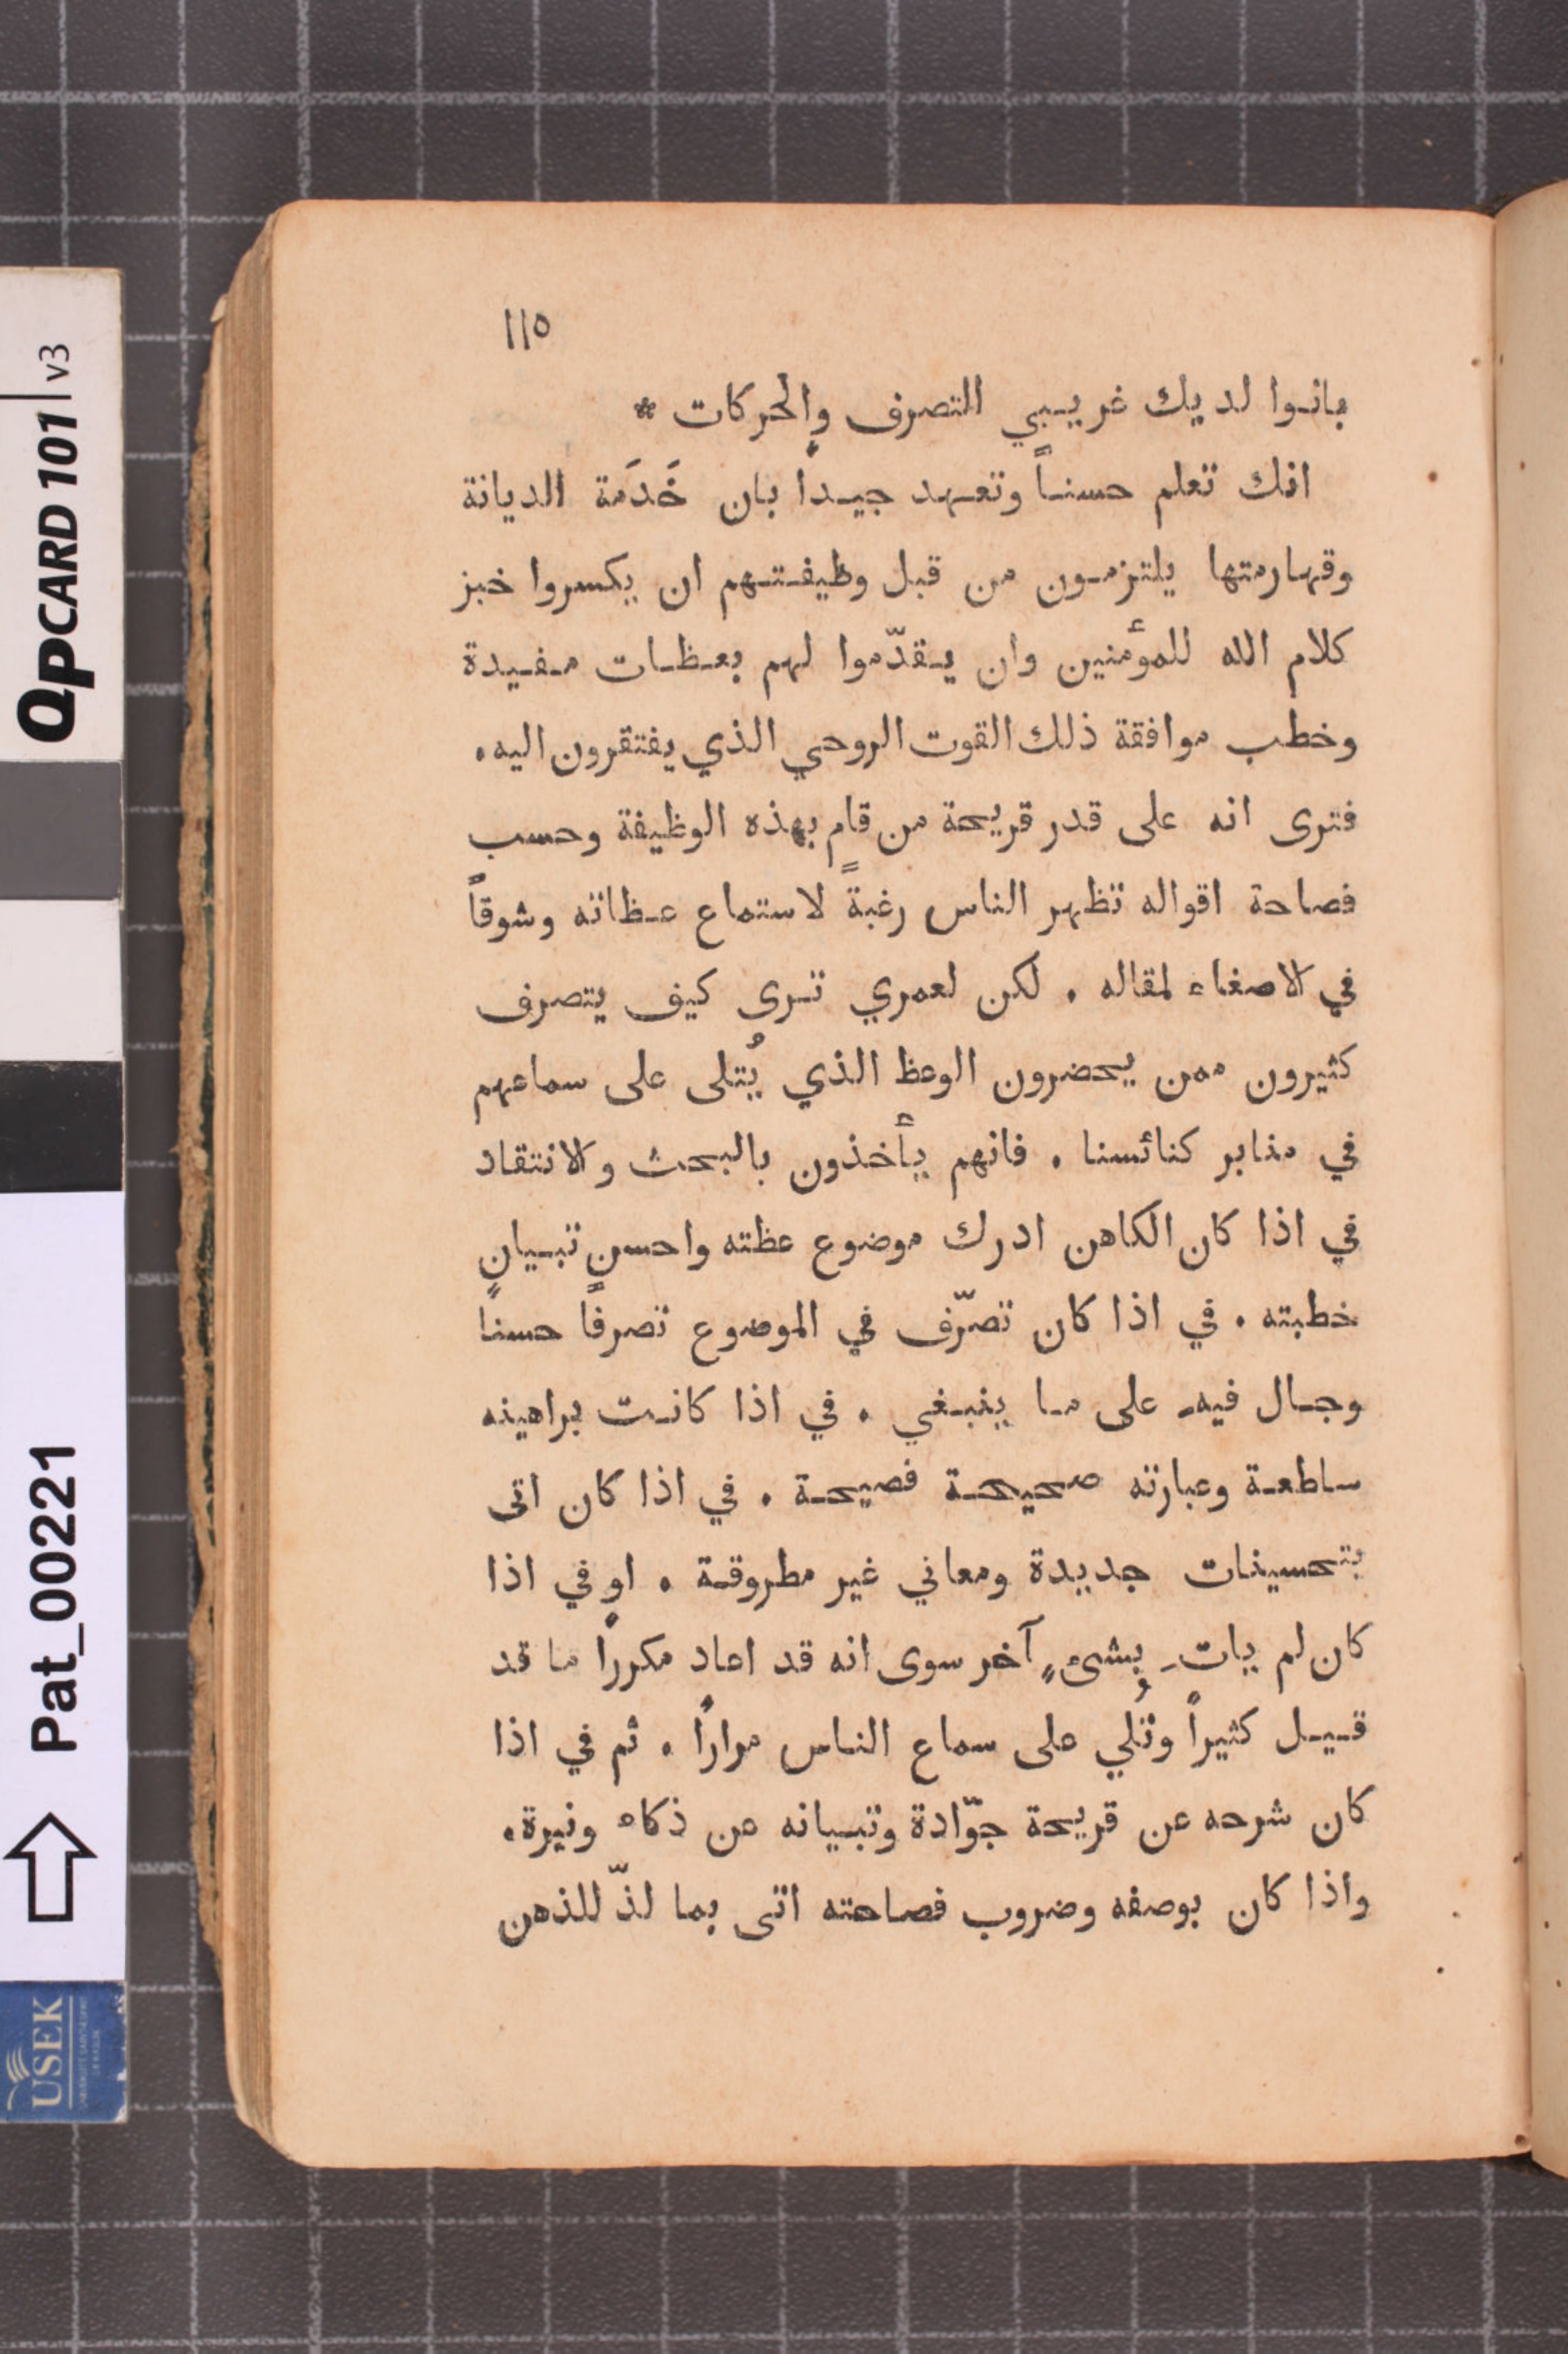 ١١٥
بانوا لديك غريبي التصرف والحركات *
انك تعلم حسناً وتعهد جيداً بان خَدَمة الديانة
وقهارمتها يلتزمون من قبل وظيفتهم ان يكسروا خبز
كلام الله للمؤمنين وان يقدّموا لهم بعظات مفيدة
وخطب موافقة ذلك القوت الروحي الذي يفتقرون اليه.
فترى انه على قدر قريحة من قام بهذه الوظيفة وحسب
فصاحة اقواله تظهر الناس رغبةً لاستماع عظاته وشوقاً
في الاصغاء لمقاله . لكن لعمري ترى كيف يتصرف
كثيرون ممن يحضرون الوعظ الذي يُتلى على سماعهم
في منابر كنائسنا . فانهم يأخذون بالبحث والانتقاد
في اذا كان الكاهن ادرك موضوع عظته واحسن تبيانٍ
خطبته . في اذا كان تصرّف في الموضوع تصرفاً حسناً
وجال فيه على ما ينبغي . في اذا كانت براهينه
ساطعة وعبارته صحيحة فصيحة . في اذا كان اتى
بتحسينات جديدة ومعاني غير مطروقة . او في اذا
كان لم يات بشئٍ آخر سوى انه قد اعاد مكرراً ما قد
قيل كثيراً وتُلي على سماع الناس مراراً . ثم في اذا
كان شرحه عن قريحة جوّادة وتبيانه عن ذكاء ونيرة.
واذا كان بوصفه وضروب فصاحته اتى بما لذّ للذهن
QPCARD 101 v3
Pat_00221
USEK